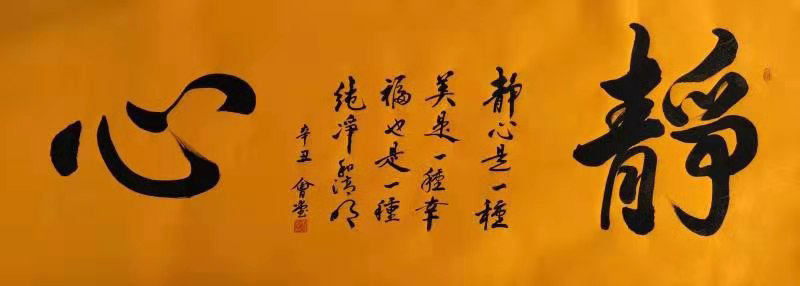 靜
静心是一種
美是一種幸
福也是一種
純净和清明
辛丑 會堂
心